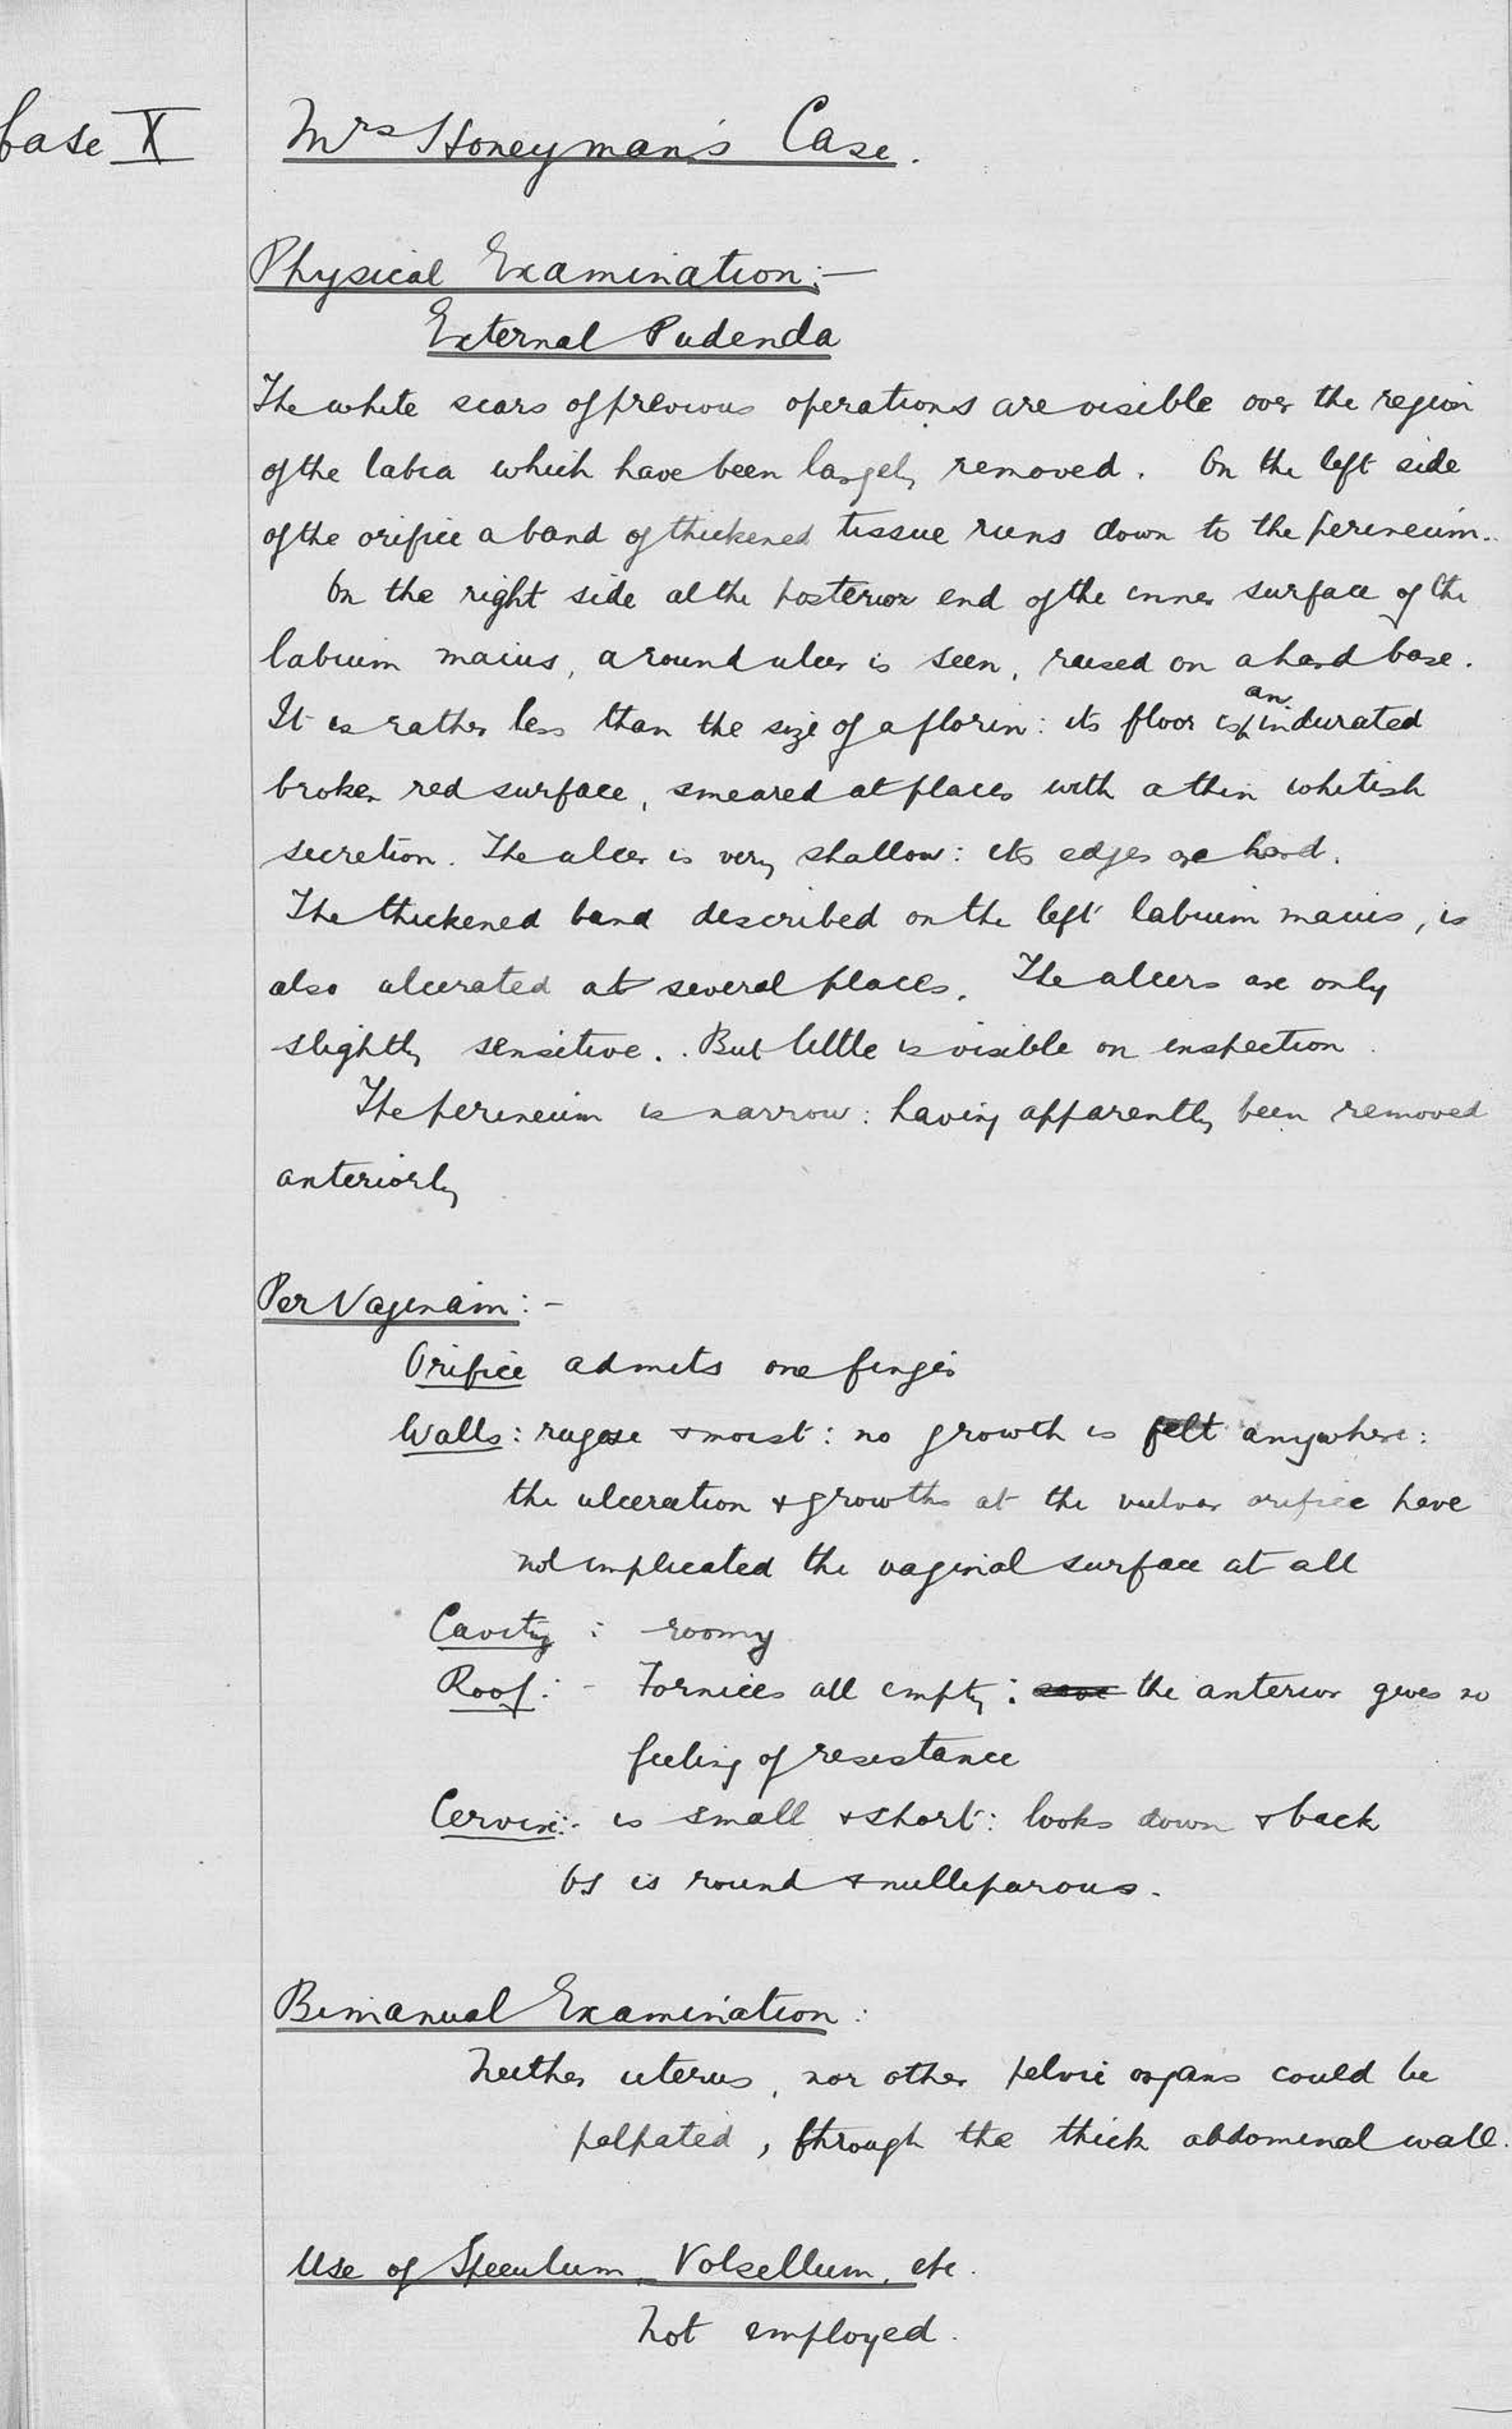 Case X
Mrs Honeyman's Case.
Physical Examination:—
External Pudenda
The white scars of previous operations are visible over the region
of the labia which have been largely removed. On the left side
of the orifice a band of thickened tissue runs down to the perineum.
On the right side at the posterior end of the inner surface of the
labium maius, a round ulcer is seen, raised on a hard base.
It is rather less than the size of a florin: its floor is an indurated
broken red surface, smeared at places with a thin whitish
secretion. The ulcer is very shallow: its edges are hard.
The thickened band described on the left labium maius, is
also ulcerated at several places. The ulcers are only
slightly sensitive. But little is visible on inspection.
The perineum is narrow: having apparently been removed
anteriorly
Per Vaginam:-
Orifice admits one finger
Walls: rugose & moist: no growth is felt anywhere:
the ulceration & growths at the vulvar orifice have
not implicated the vaginal surface at all
Cavity: roomy
Roof:- Fornices all empty: save the anterior gives no
feeling of resistance
Cervix:- is small & short: looks down & back
Os is round & nulliparous.
Bimanual Examination:
Neither uterus, nor other pelvic organs could be
palpated, through the thick abdominal wall.
Use of Speculum, Volsellum, etc.
Not employed.